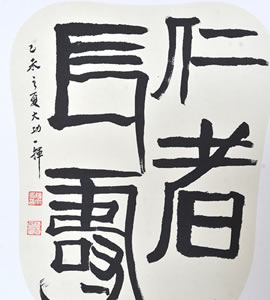 仁者
長壽
乙未之夏大功一揮